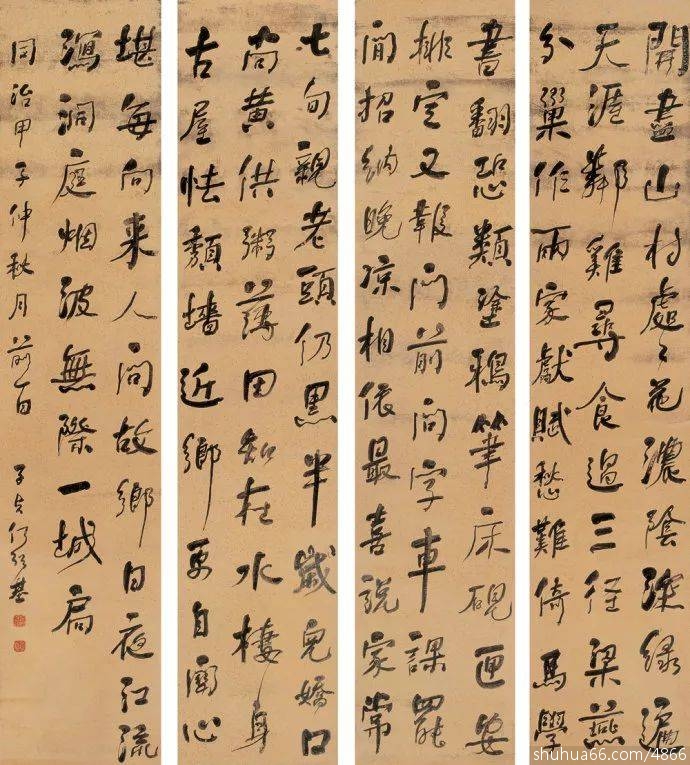 開盡山村處々花濃陰深綠遍
天涯鄰雞尋食過三徑梁燕
分巢作兩家獻賦愁難倚馬學
書翻恐類塗鴉筆床硯匣安
排定又報門前問字車課罷
閒招納晚凉相依最喜說家常
七旬親老頭仍黑半歲兒嬌口
尚黃供粥薄田知在水棲身
古屋怯頹墻近鄉更自關心
堪每向來人問故鄉日夜江流
瀉洞庭烟波無際一城扃
同治甲子仲秋月前一日 子貞何紹基
shuhua66.com/4866